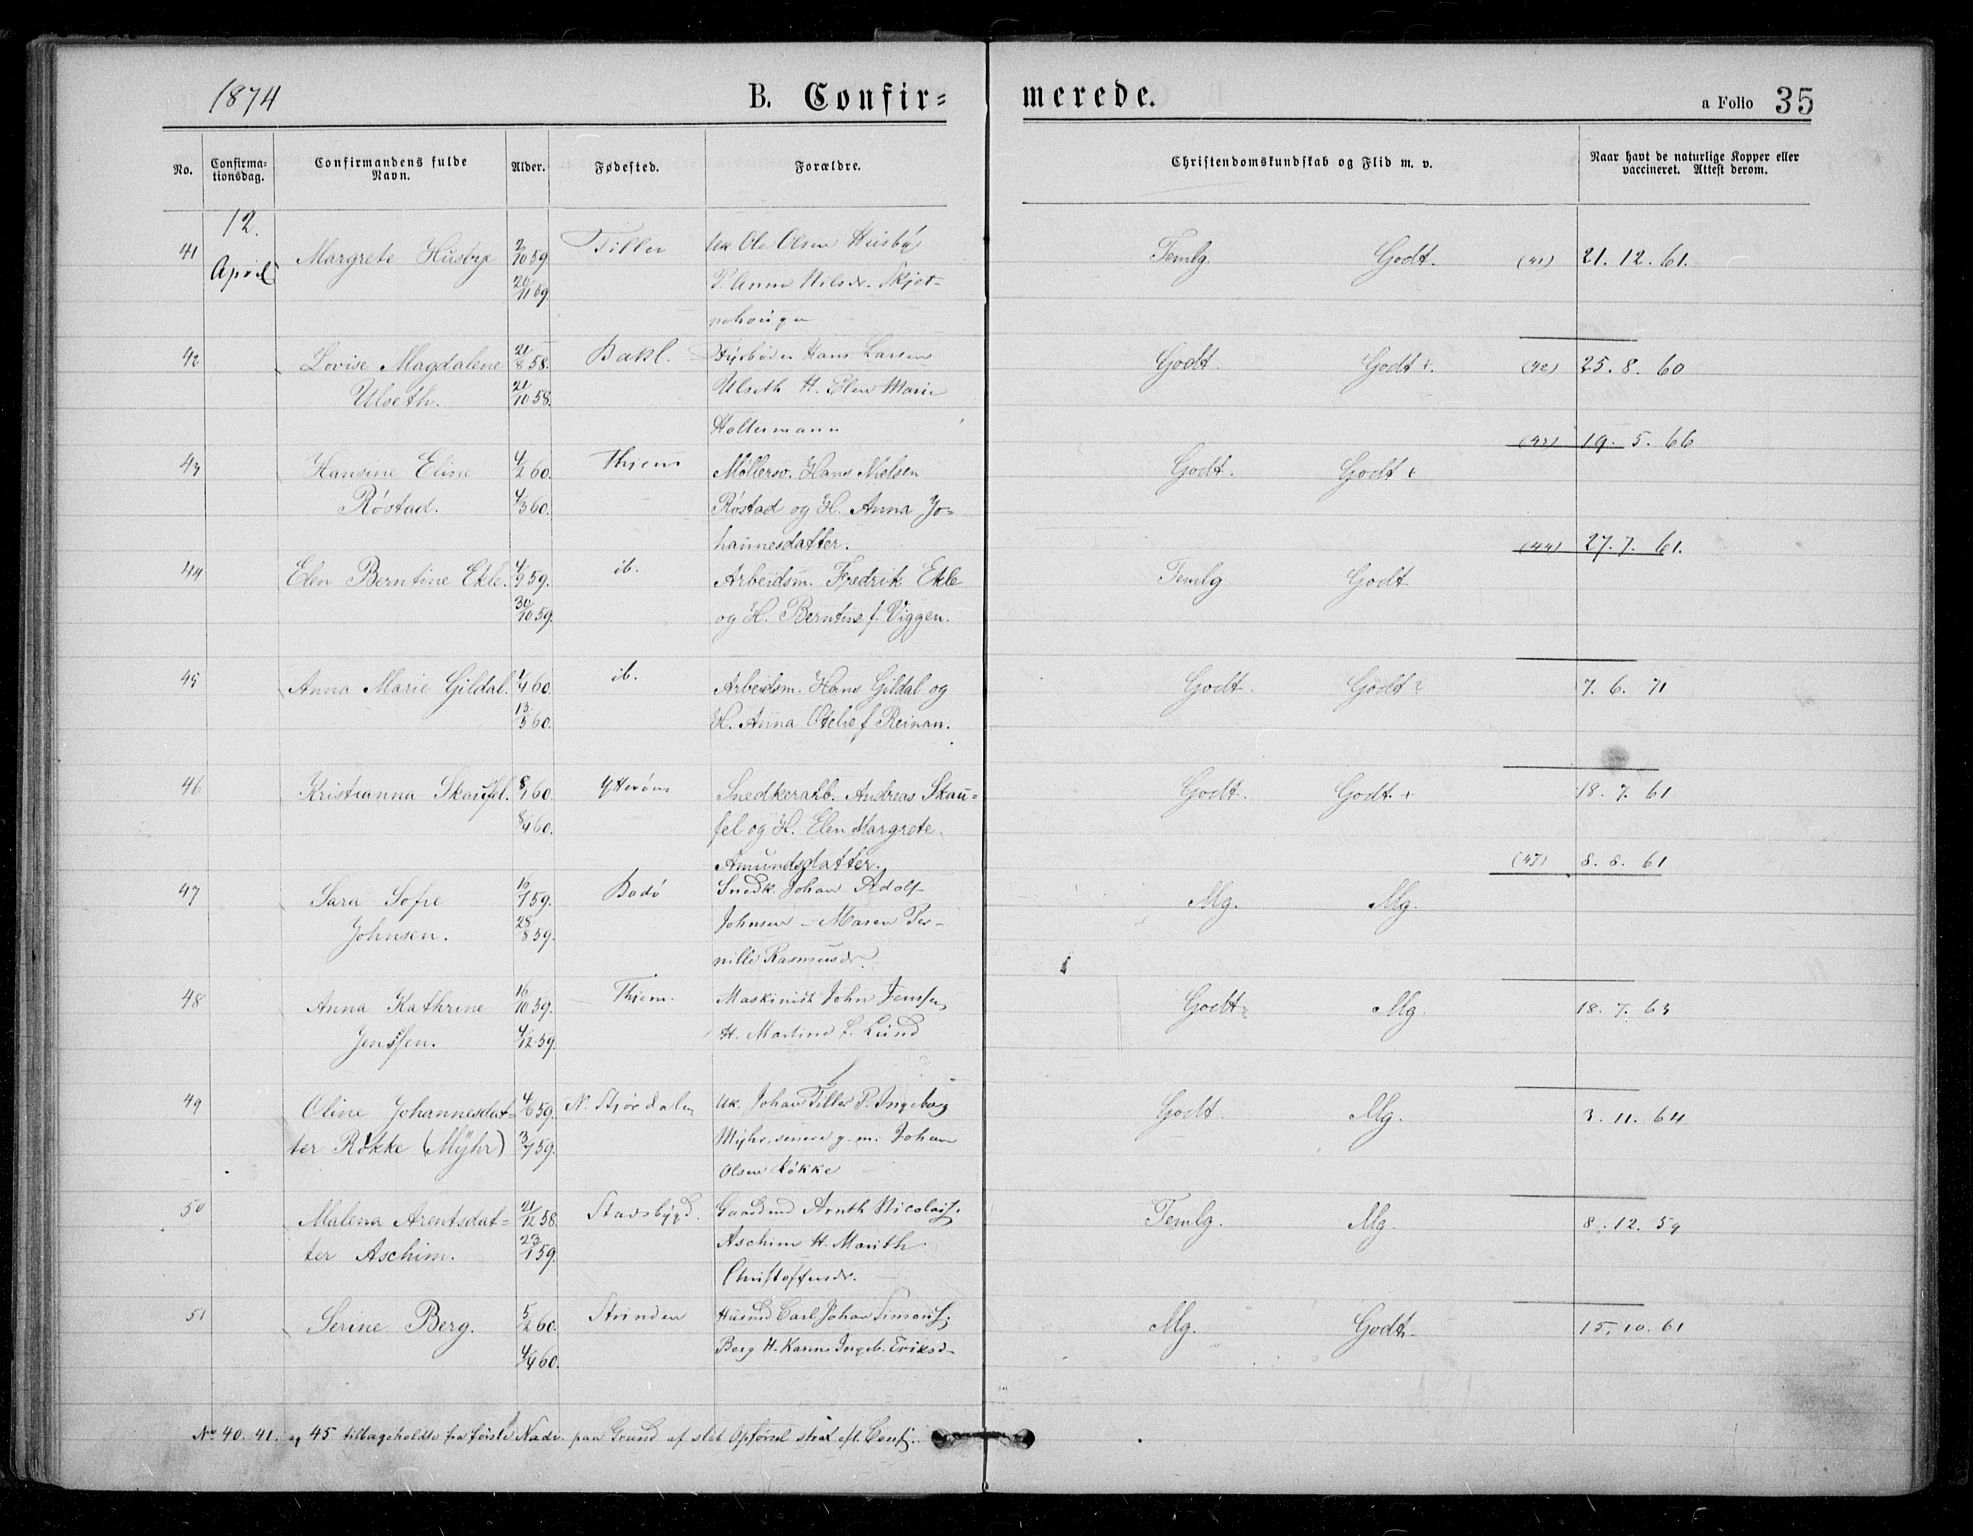 1874 B. Confir= merede. a Folio 35
No. Confirma=tionsdag. Confirmandens fulde Navn. Alder. Fødested. Forældre. Christendomskundskab og Flid m. v. Naar havt de naturlige Kopper eller vaccineret. Attest derom.
12. April
41 Margrete Husby 2/10 59. Tiller Uk Ole Olsen Husby Temlg. Godt. (41) 21. 12. 61.
20/11 59. P. Anne Nilsdr. Skjet=
nehougen
42 Lovise Magdalene 21/8 58. Bakl. Fyrbøder Hans Larsen Godt. Godt (42) 25. 8. 60
Ulseth. 21/10 58. Ulseth H. Elen Marie
Holtermann (43) 19. 5. 66
43 Hansine Eline 4/2 60. Thjem Møllersv. Hans Nielsen Godt. Godt
Røstad. 4/3 60. Røstad og H. Anna Jo=
hannesdatter. (44) 27. 7. 61.
44 Elen Berntine Ekle. 4/9 59. ib. Arbeidsm. Fredrik Ekle Temlg Godt
30/10 59. og H. Berntine f. Viggen.
45 Anna Marie Gildal. 1/4 60. ib. Arbeidsm. Hans Gildal og Godt. Godt 7. 6. 71
13/5 60. H. Anna Otelie f. Reinan.
46 Kristianna Skaufel. 8/1 60. Ytterøen Snedkerarb. Andreas Skau= Godt. Godt. 18. 7. 61
8/4 60. fel og H. Elen Margrete
Amundsdatter. (47) 8. 8. 61
47 Sara Sofie 16/7 59. Bodø Snedk. Johan Adolf Mg. Mg.
Johnsen. 28/8 59. Johnsen - Maren Per=
nille Rasmusdr.
48 Anna Kathrine 16/10 59. Thjem. Maskinist John Jenssen Godt Mg. 18. 7. 63
Jenssen. 4/12 59. H. Martine f. Lund
49 Oline Johannesdat= 4/6 59. N. Stjørdalen Uk. Johan Tiller P. Ingeborg Godt. Mg. 3. 11. 64
ter Røkke (Myhr) 3/7 59. Myhr, senere g. m. Johan
Olsen Røkke
50 Malena Arentsdat= 21/12 58. Stadsbygd. Gaardmd Arnth Nicolais. Temlg. Mg. 8. 12. 59
ter Aschim. 23/1 59. Aschim H. Marith
Christoffersdr.
51 Serine Berg. 5/2 60. Strinden Husmd Carl Johan Simons. Mg. Godt. 15. 10. 61
4/4 60. Berg H. Karen Ingeb. Eriksd
No 40. 41. og 45 tilbageholdte fra første Nadv. paa Grund af slet Opførsel strax eft. Conf.